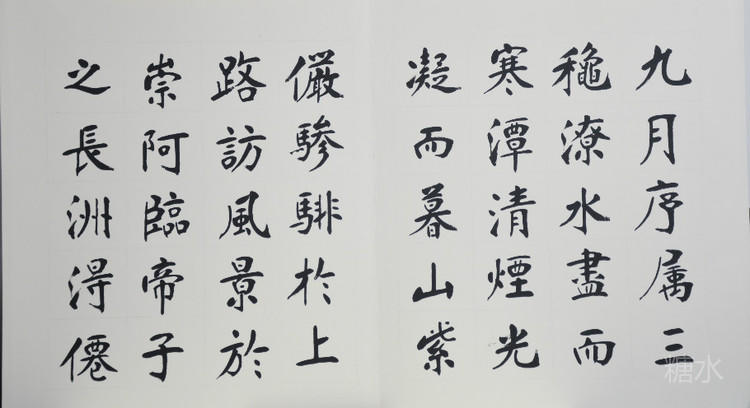 九月序属三
龝潦水盡而
寒潭清煙光
凝而暮山紫
儼驂騑於上
路訪風景於
崇阿臨帝子
之長洲淂僊
糖水